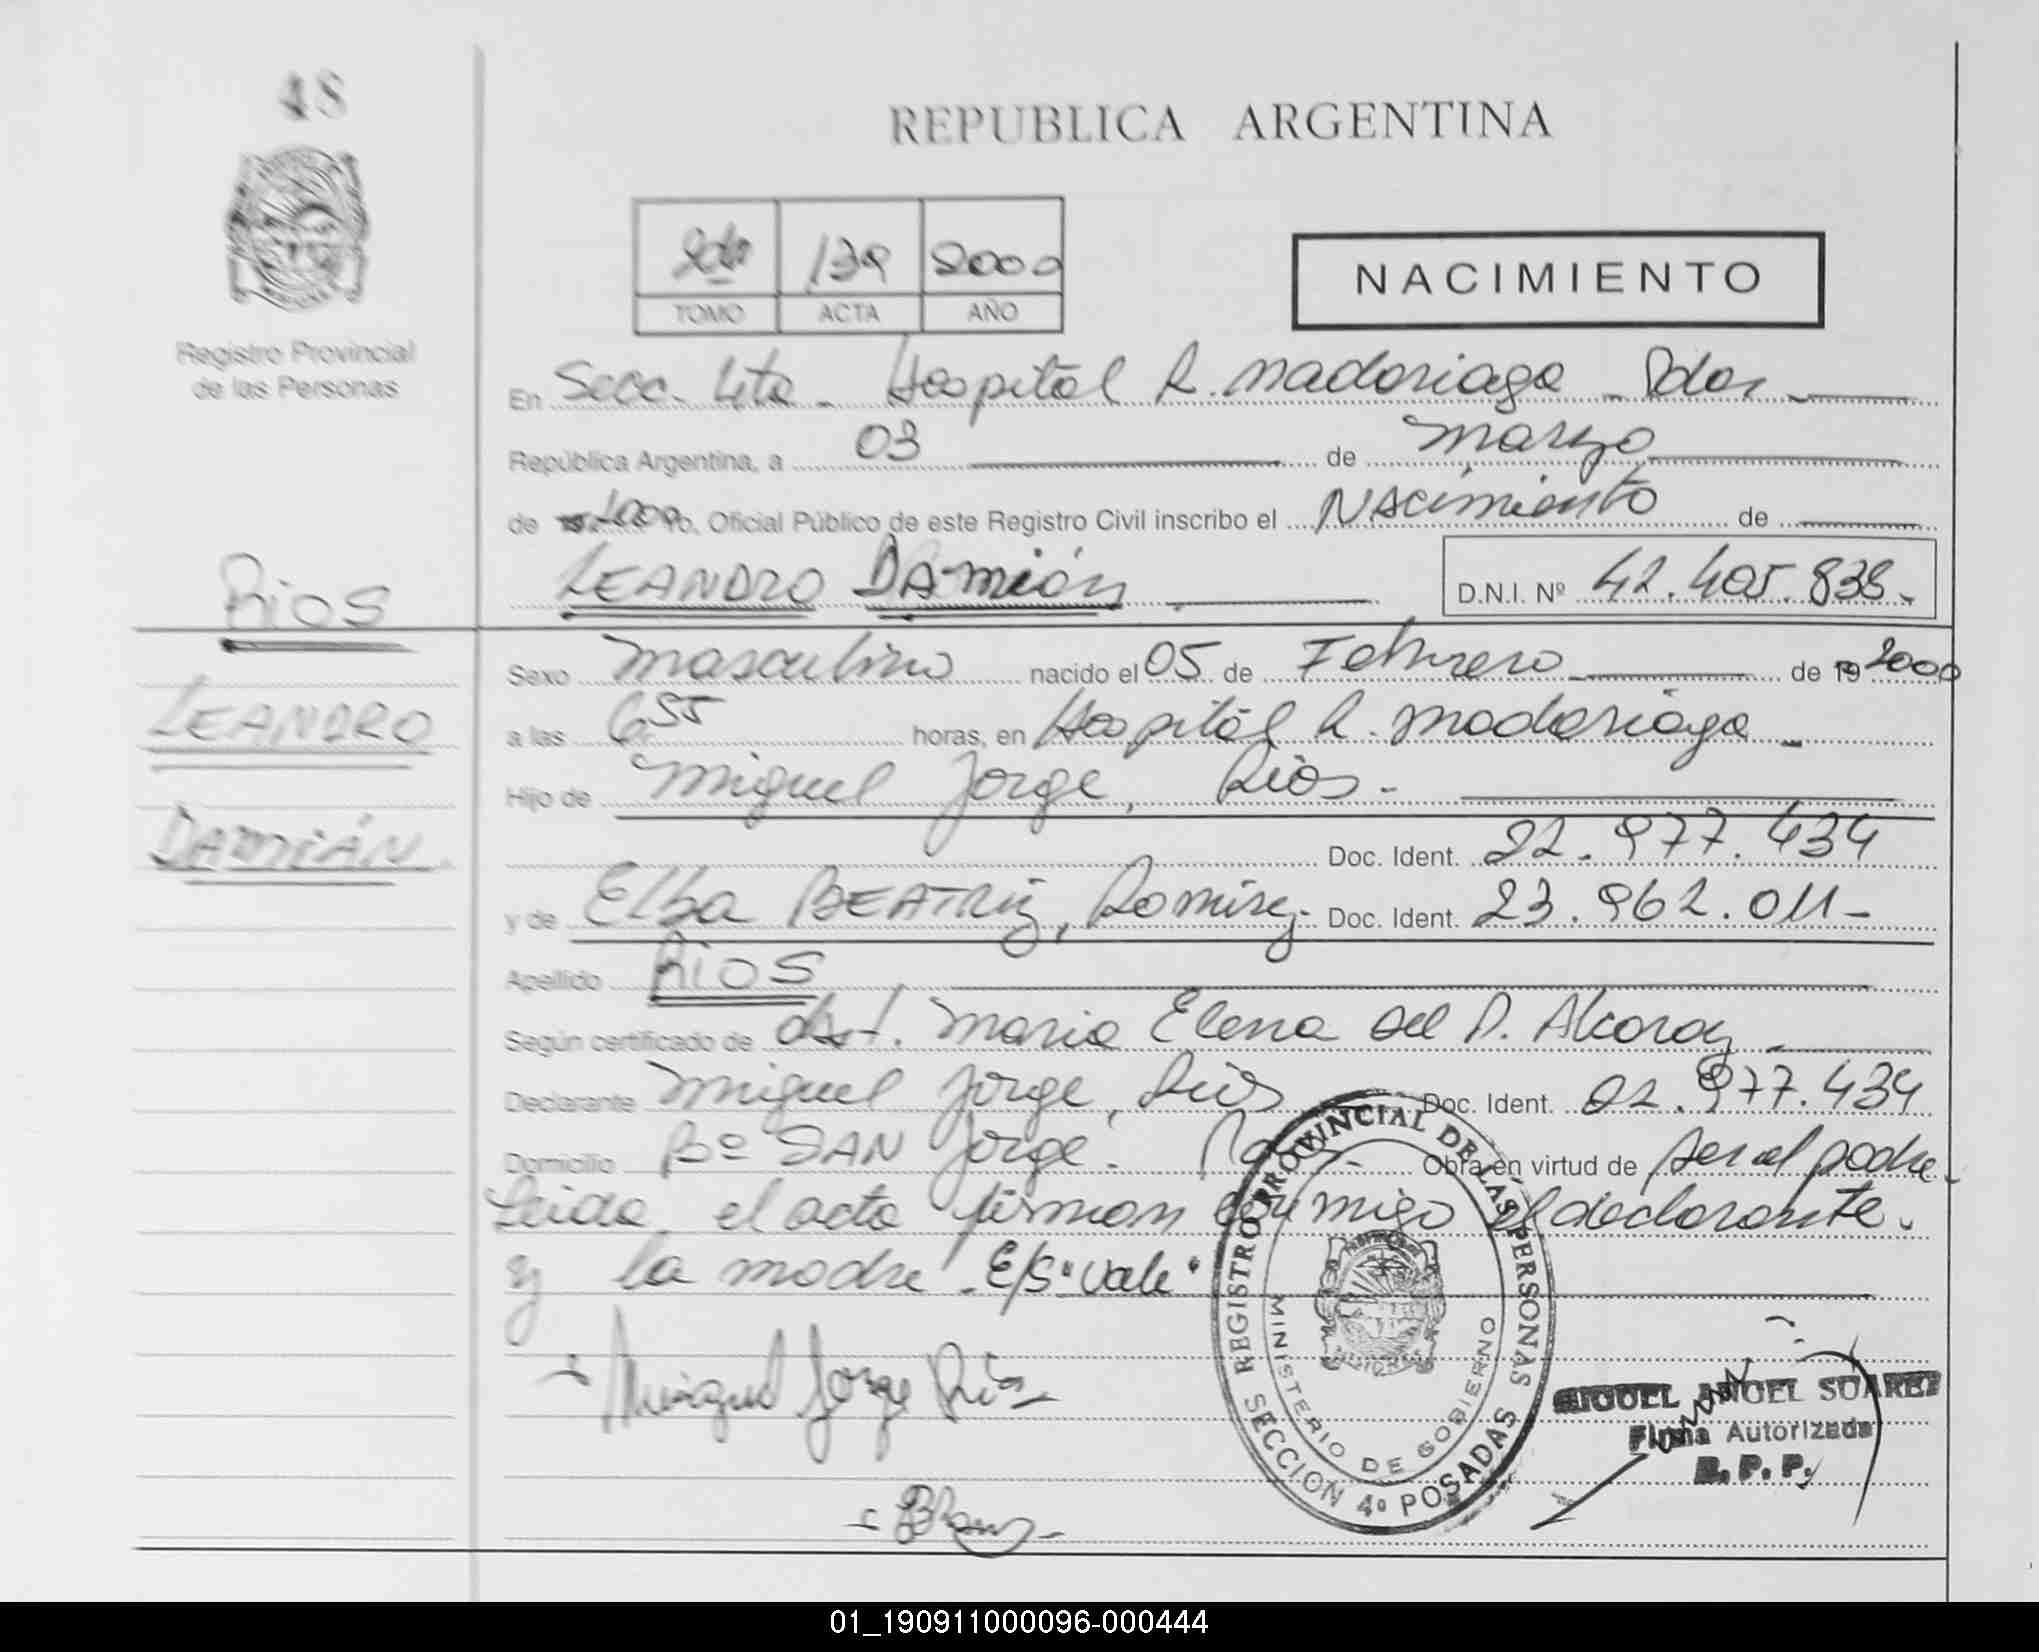 48
REPUBLICA ARGENTINA
2do 139 2000
TOMO ACTA AÑO
NACIMIENTO
Registro Provincial
de las Personas
En Secc. 4ta - Hospital R. Madariaga - Pdas -
República Argentina, a 03 de marzo
de 2000 Yo, Oficial Público de este Registro Civil inscribo el Nacimiento de
LEANDRO DAmián D.N.I. Nº 42.405.838.-
Rios
LEANDRO
DAmiÁN.
Sexo masculino nacido el 05 de Febrero de 19 2000
a las 6,55 horas, en Hospital R. Madariaga -
Hijo de Miguel Jorge, Rios. -
Doc. Ident. 22.977.434
y de Elba BEATRiz, Ramirez. Doc. Ident. 23.962.011-
Apellido RiOS
Según certificado de obst. Maria Elena del P. Alcaraz -
Declarante Miguel Jorge, Rios Doc. Ident. 22.977.434
Domicilio Bº SAN Jorge. Obra en virtud de ser el padre.
Leida el acta firman conmigo el declarante.
y la madre - E/S "vale"
- Miguel Jorge Ríos -
REGISTRO PROVINCIAL DE LAS PERSONAS
MINISTERIO DE GOBIERNO
SECCION 4º POSADAS
MISIONES
MIGUEL ANGEL SUAREZ
Firma Autorizada
R. P. P.
01_190911000096-000444